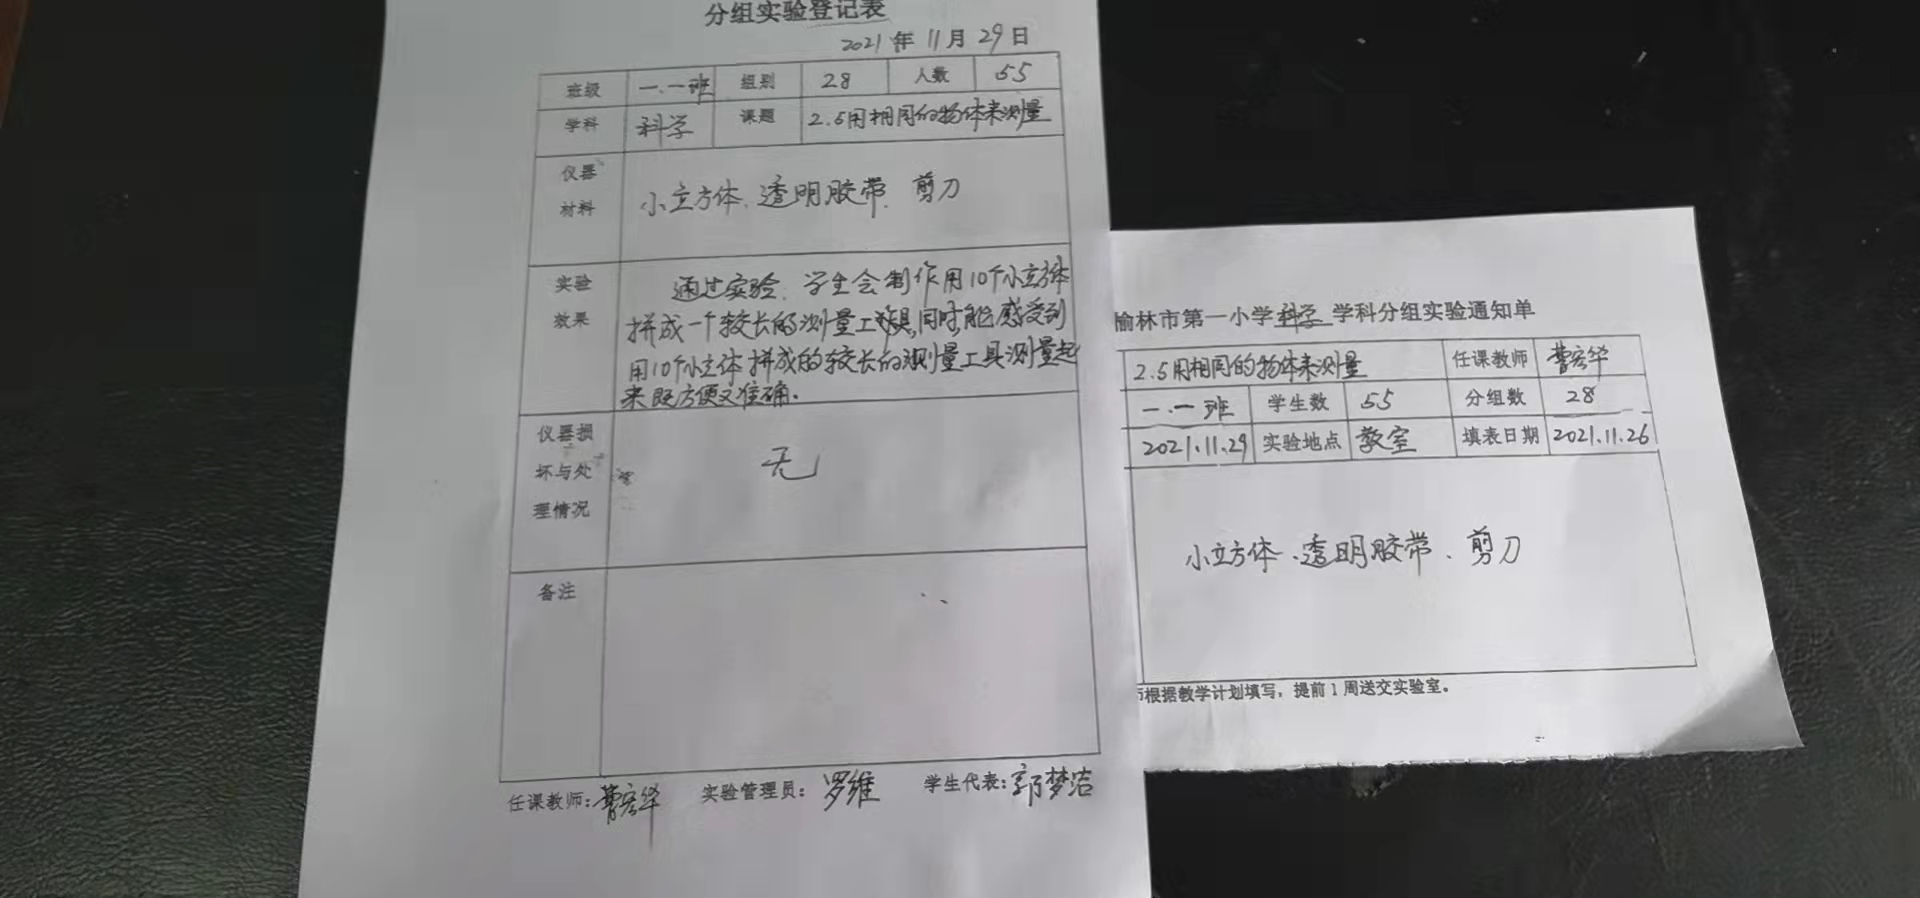 分组实验登记表
2021年11月29日
班级 一.一班 组别 28 人数 55
学科 科学 课题 2.5用相同的物体来测量
仪器材料 小立方体、透明胶带、剪刀
实验效果 通过实验、学生会制作用10个小立方体
拼成一个较长的测量工具,同时能感受到
用10个小立体拼成的较长的测量工具测量起
来既方便又准确。
仪器损坏与处理情况 无
备注
任课教师:曹宏华 实验管理员:罗维 学生代表:郭梦洁
榆林市第一小学科学学科分组实验通知单
2.5用相同的物体来测量 任课教师 曹宏华
一.一班 学生数 55 分组数 28
2021.11.29 实验地点 教室 填表日期 2021.11.26
小立方体、透明胶带、剪刀
师根据教学计划填写，提前1周送交实验室。